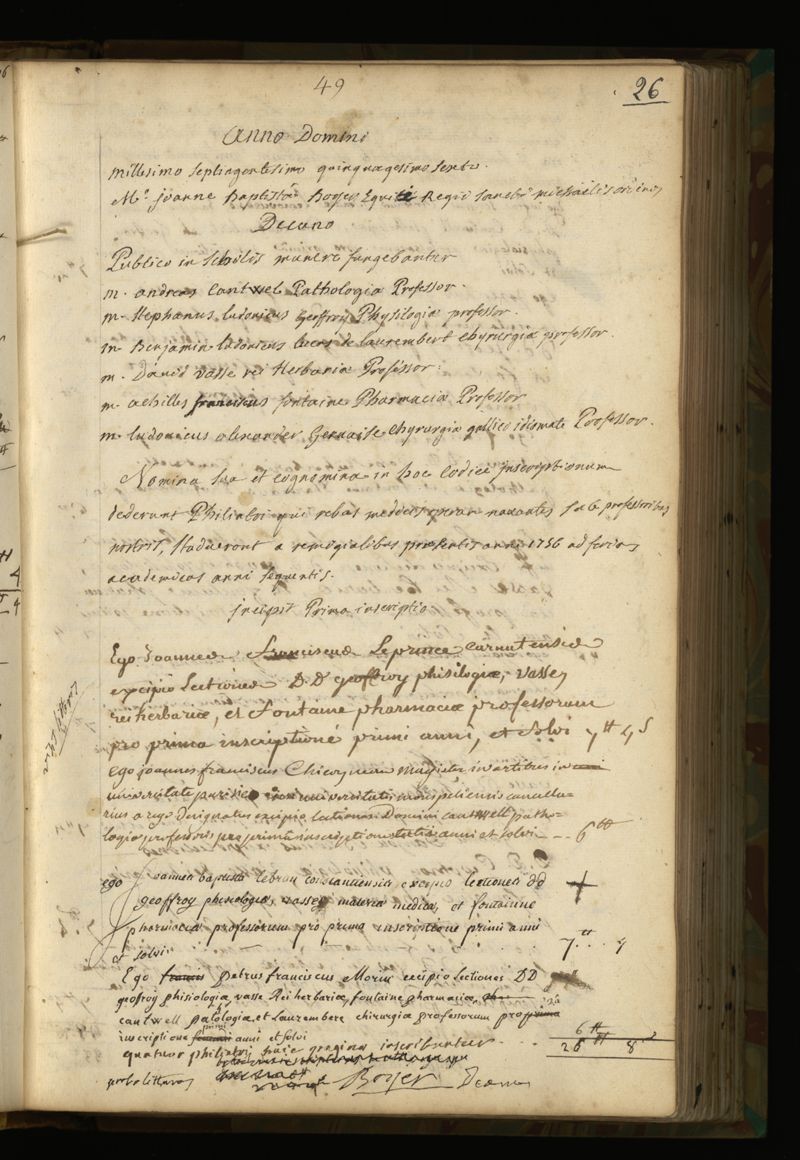 49
26
Anno Domini
millesimo septingentesimo quinquagesimo sexto.
Mo. Joanne Baptista Boyer Equite Regii sancti michaelis ordinis
Decano
Publico in scholis munere fungebantur
m. andreas Cantwel Pathologiæ Professor.
m. Stephanus ludovicus Geoffroy Physilogiæ professor.
m. Benjamin ludovicus lucas de laurembert chyrurgiæ professor.
m. David vasse rei Herbariæ Professor.
m. achilles franciscus fontaine Pharmaciæ Professor
m. ludovicus alexander Gervaise chyrurgiæ gallico idiomate Professor.
Nomina sua et cognomina in hoc codice inscriptionum
dederunt Philiatri qui rebus medicis operam navantes sub professoribus
nostris, studuerunt a remigialibus præsentis anni 1756 ad ferias
academicas anni sequentis.
incipit Prima inscriptio
Ego Joannes Franciscus Leprince Carnutensis
excipio Lectiones D.D. geoffroy phisilogiæ, Vasse,
rei herbariæ, et Fontaine pharmaciæ professorum
pro prima inscriptione primi anni, et solvi 7tt 4s
Ego joannes franciscus magister in artibus in
universitate parisi universitatis cancella-
rius a rege designatus excipio lectiones Domini cantwell patho-
logiæ professoris pro prima inscriptione anni et solvi -- 6tt
ego Joannes baptista lebrun constantiensis, excipio lectiones dd
geoffroy phisiologiæ, vasse materia medica, et fontaine
pharmaciæ professorum pro prima inscriptione primi anni
et solvi 7tt.. 4
Ego petrus franciscus Morin excipio Lectiones DD
geofroy phisiologiæ, vasse Rei herbariæ, fontaine pharmaciæ,
cantwell patologiæ, et Laurembere chirurgiæ professorum pro prima
inscriptione anni et solvi 6tt
quatuor philiatri huic pagina inscribuntur 26tt 8s
Boyer Decanus